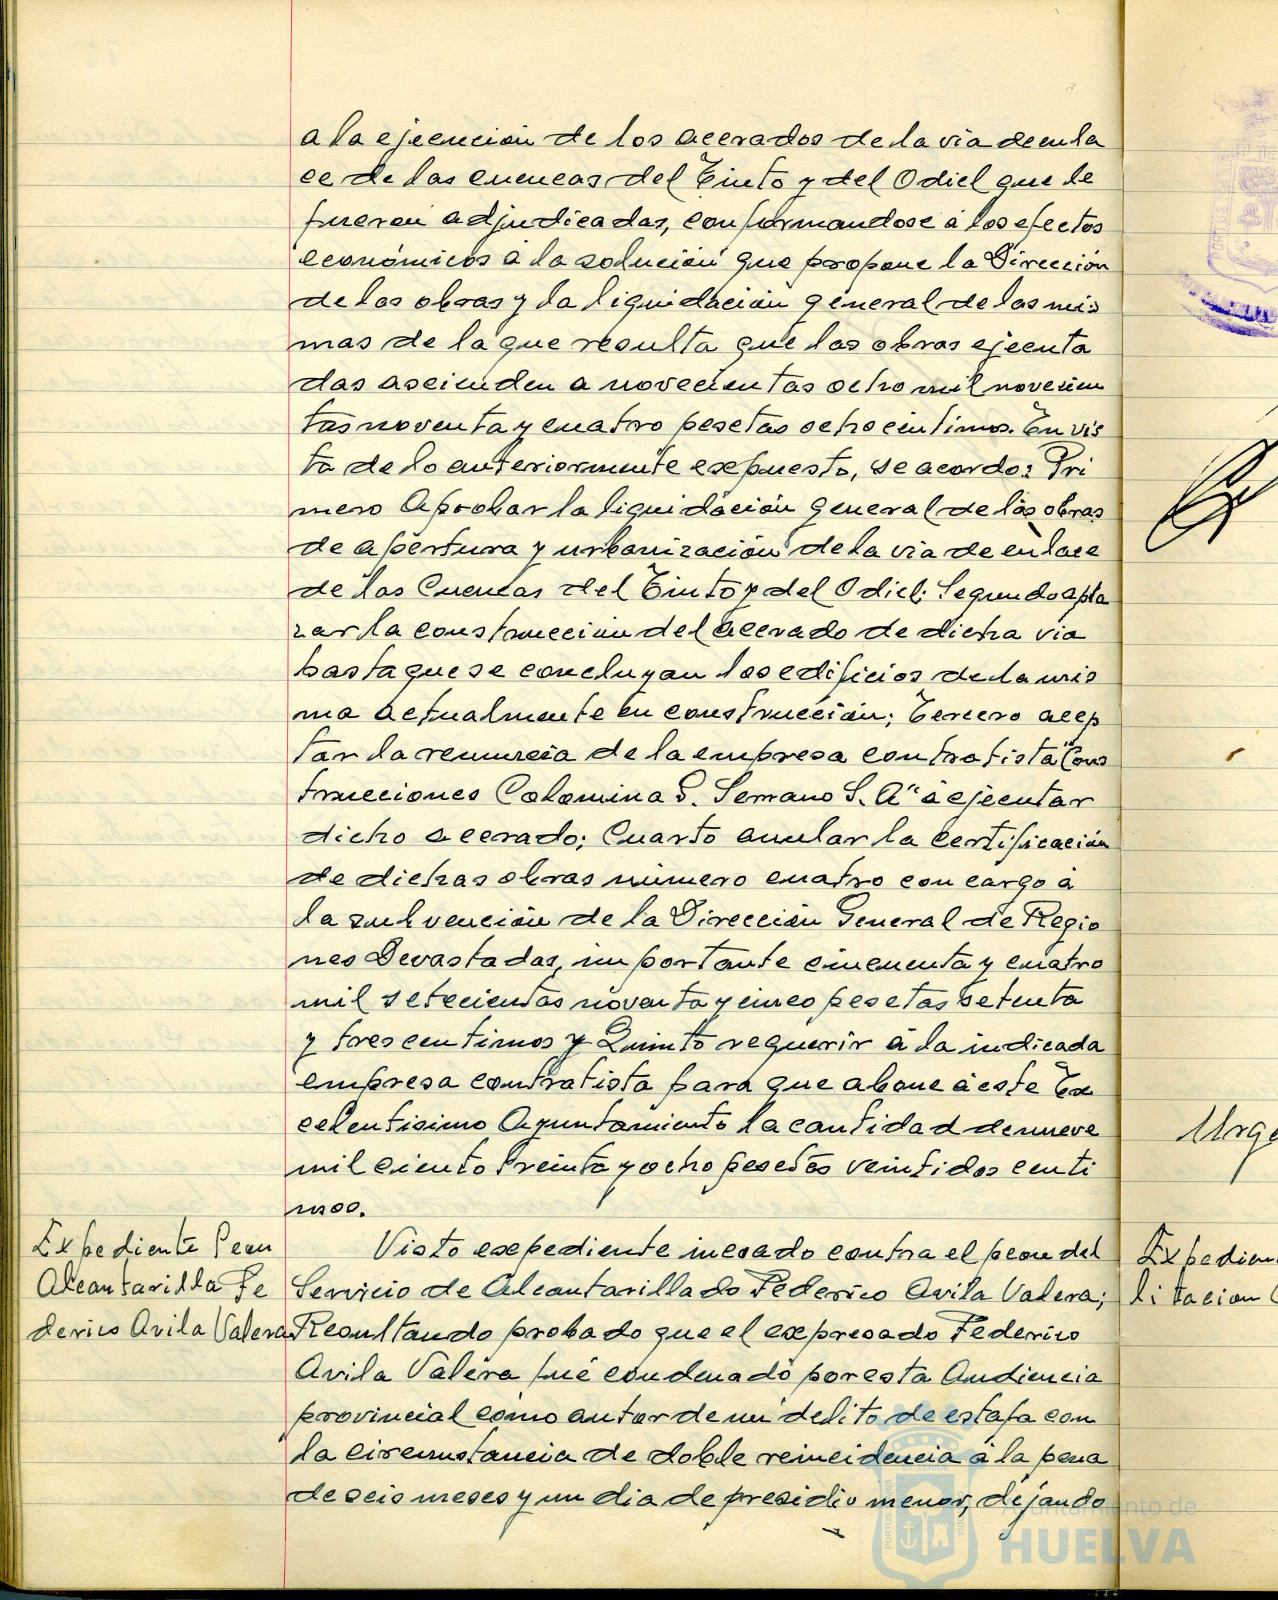 a la ejecución de los acerados de la via de enla
ce de las cuencas del Tinto y del Odiel que le
fueron adjudicadas, conformandose á los efectos
económicos á la solución que propone la Dirección
de las obras y la liquidación general de las mis
mas de la que resulta que las obras ejecuta
das ascienden a novecientas ocho mil novecien
tas noventa y cuatro pesetas ocho centimos. En vis
ta de lo anteriormente expuesto, se acordo: Pri
mero Aprobar la liquidación general de las obras
de apertura y urbanización de la via de enlace
de las Cuencas del Tinto y del Odiel: Segundo apla
zar la construcción del acerado de dicha via
hasta que se concluyan los edificios de la mis
ma actualmente en construcción; Tercero acep
tar la renuncia de la empresa contratista "Cons
trucciones Colomina G. Serrano S. A" á ejecutar
dicho acerado; Cuarto anular la certificación
de dichas obras número cuatro con cargo á
la subvención de la Dirección General de Regio
nes Devastadas, importante cincuenta y cuatro
mil setecientas noventa y cinco pesetas setenta
y tres centimos y Quinto requerir á la indicada
empresa contratista para que abone á este Ex
celentisimo Ayuntamiento la cantidad de nueve
mil ciento treinta y ocho pesetas veintidos centi
mos.
Expediente Peon
Alcantarilla Fe
derico Avila Valera
Visto expediente incoado contra el peon del
Servicio de Alcantarillado Federico Avila Valera;
Resultando probado que el expresado Federico
Avila Valera fué condenado por esta Audiencia
provincial como autor de un delito de estafa con
la circunstancia de doble reincidencia á la pena
de seis meses y un dia de presidio menor, dejando
Urge
Expedien
litacion
Ayuntamiento de
HUELVA